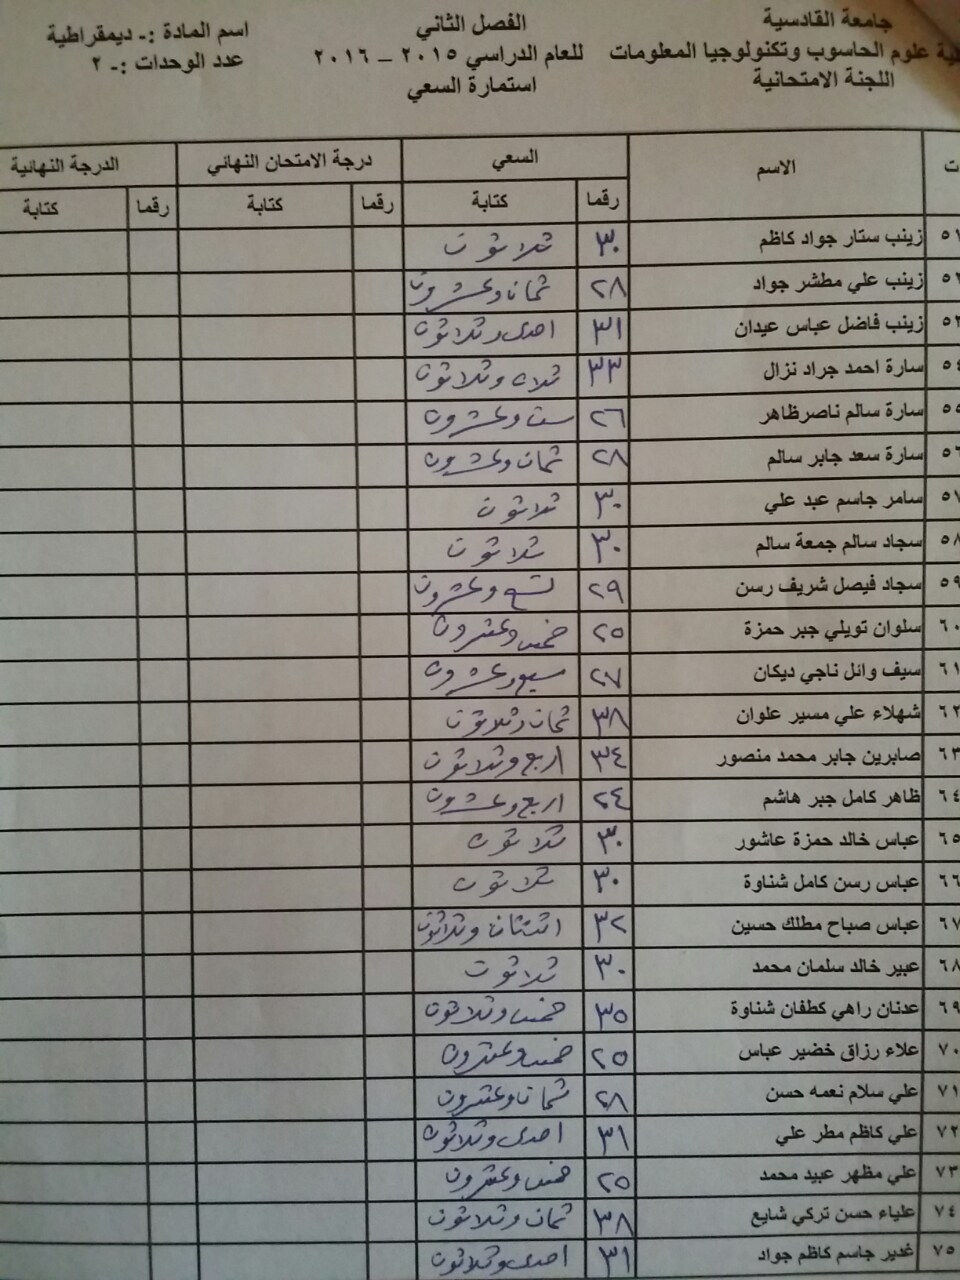 جامعة القادسية
كلية علوم الحاسوب وتكنولوجيا المعلومات
اللجنة الامتحانية
الفصل الثاني
للعام الدراسي ٢٠١٥ – ٢٠١٦
استمارة السعي
اسم المادة :- ديمقراطية
عدد الوحدات :- ٢
ت الاسم السعي درجة الامتحان النهائي الدرجة النهائية
رقما كتابة رقما كتابة رقما كتابة
٥١ زينب ستار جواد كاظم ٣٠ ثلاثون
٥٢ زينب علي مطشر جواد ٢٨ ثمان وعشرون
٥٣ زينب فاضل عباس عيدان ٣١ احدى وثلاثون
٥٤ سارة احمد جراد نزال ٣٣ ثلاث وثلاثون
٥٥ سارة سالم ناصرظاهر ٢٦ ست وعشرون
٥٦ سارة سعد جابر سالم ٢٨ ثمان وعشرون
٥٧ سامر جاسم عبد علي ٣٠ ثلاثون
٥٨ سجاد سالم جمعة سالم ٣٠ ثلاثون
٥٩ سجاد فيصل شريف رسن ٢٩ تسع وعشرون
٦٠ سلوان تويلي جبر حمزة ٢٥ خمس وعشرون
٦١ سيف وائل ناجي ديكان ٢٧ سبع وعشرون
٦٢ شهلاء علي مسير علوان ٣٨ ثمان وثلاثون
٦٣ صابرين جابر محمد منصور ٣٤ اربع وثلاثون
٦٤ ظاهر كامل جبر هاشم ٢٤ اربع وعشرون
٦٥ عباس خالد حمزة عاشور ٣٠ ثلاثون
٦٦ عباس رسن كامل شناوة ٣٠ ثلاثون
٦٧ عباس صباح مطلك حسين ٣٢ اثنتان وثلاثون
٦٨ عبير خالد سلمان محمد ٣٠ ثلاثون
٦٩ عدنان راهي كطفان شناوة ٣٥ خمس وثلاثون
٧٠ علاء رزاق خضير عباس ٢٥ خمس وعشرون
٧١ علي سلام نعمه حسن ٢٨ ثمان وعشرون
٧٢ علي كاظم مطر علي ٣١ احدى وثلاثون
٧٣ علي مظهر عبيد محمد ٢٥ خمس وعشرون
٧٤ علياء حسن تركي شايع ٣٨ ثمان وثلاثون
٧٥ غدير جاسم كاظم جواد ٣١ احدى وثلاثون